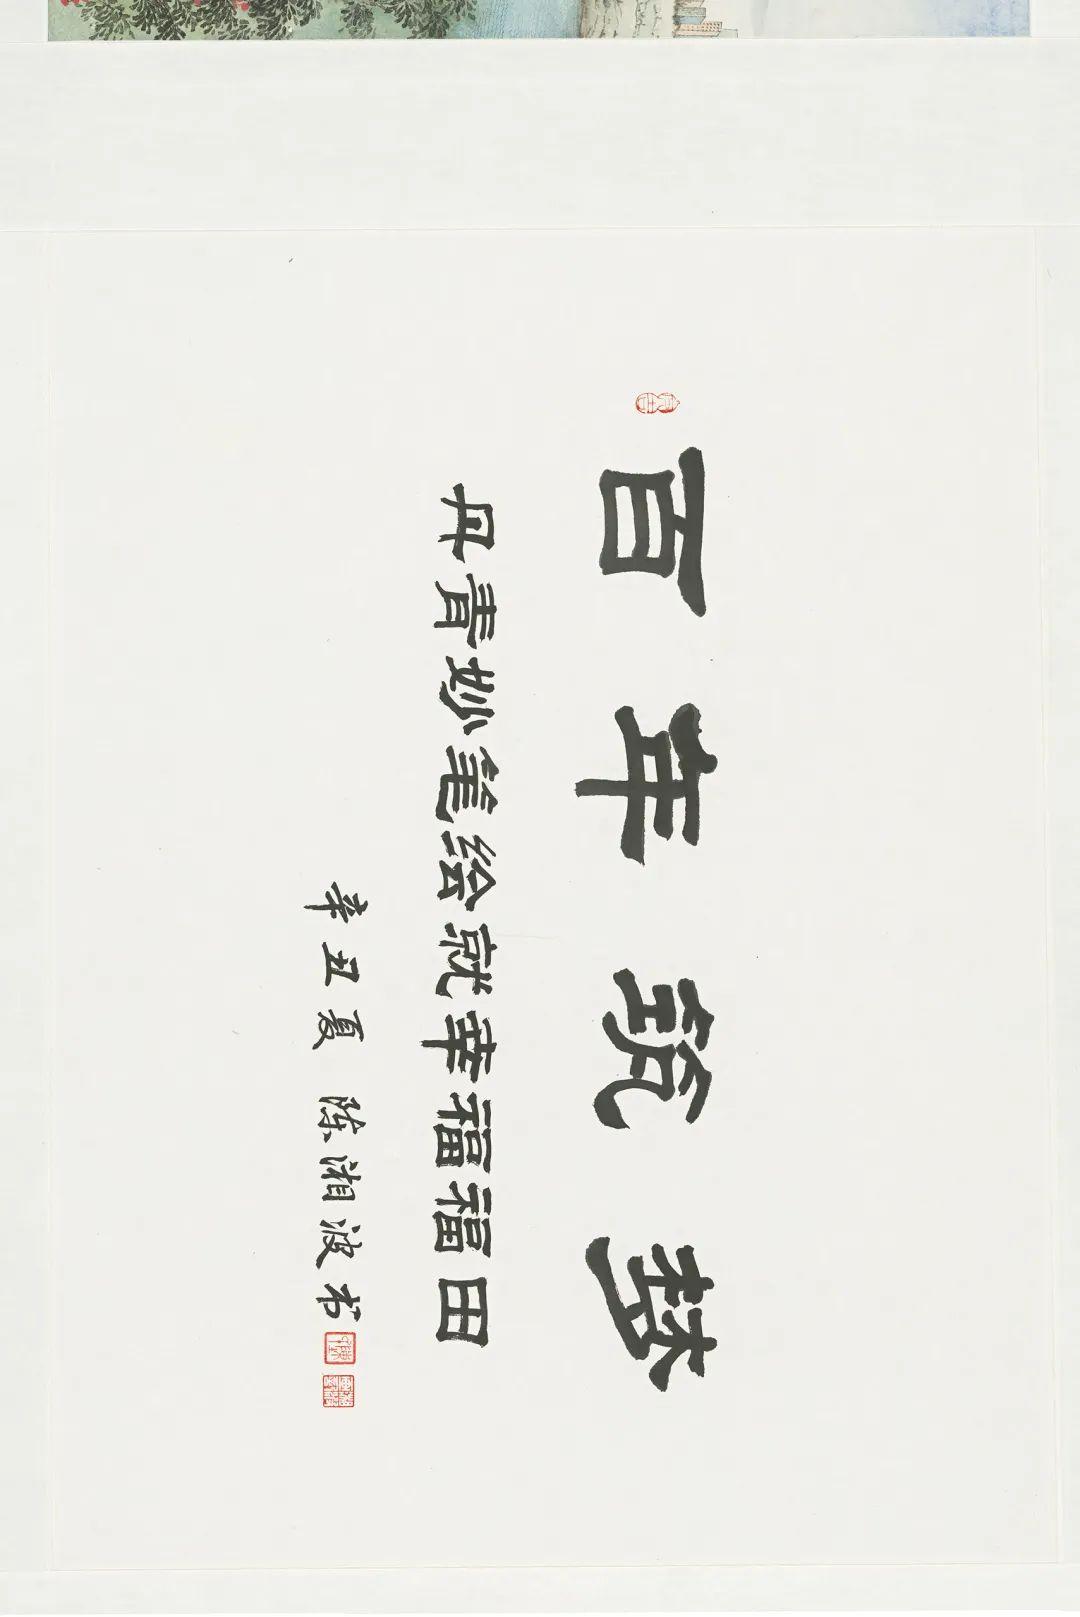 百年筑梦
丹青妙笔绘就幸福福田
辛丑夏 陈湘波书